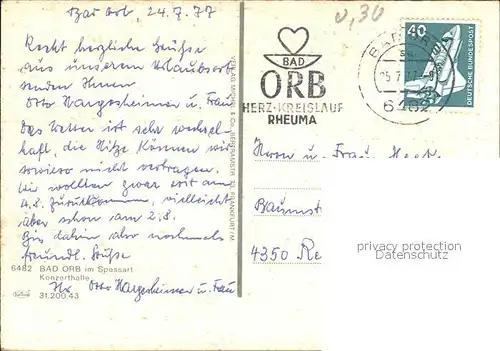 Bad Orb, 24.7.77
0,30
Recht herzliche Grüße
aus unserem Urlaubsort
senden Ihnen
Otto Hargesheimer u. Frau
Das Wetter ist sehr wechsel-
haft, die Hitze können wir
sowieso nicht vertragen.
Wir wollten zwar erst am
4.8. zurückkommen, vielleicht
aber schon am 2.8.
Bis dahin also nochmals
freundl. Grüße
Ihr Otto Hargesheimer u. Frau
6482 BAD ORB im Spessart
Konzerthalle
31.200.43
BAD
ORB
HERZ-KREISLAUF
RHEUMA
BAD ORB
6482
40
DEUTSCHE BUNDESPOST
Herrn u. Frau
4350 Re
privacy protection
Datenschutz